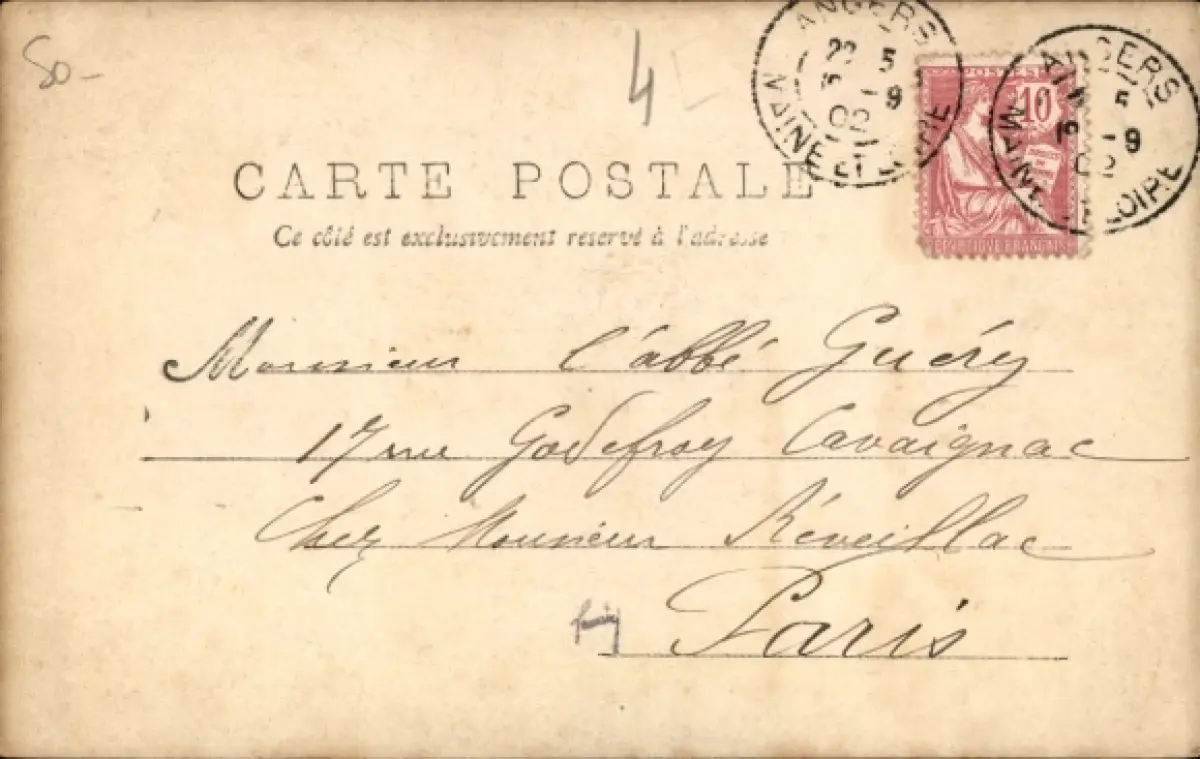 50-
4
ANGERS
22 5
9
02
MAINE ET LOIRE
POSTES
10
REPUBLIQUE FRANÇAISE
ANGERS
5
9
MAINE LOIRE
CARTE POSTALE
Ce côté est exclusivement reservé à l'adresse
Monsieur l'abbé Guéry
17 rue Godefroy Cavaignac
Chez Monsieur Réveillac
Paris